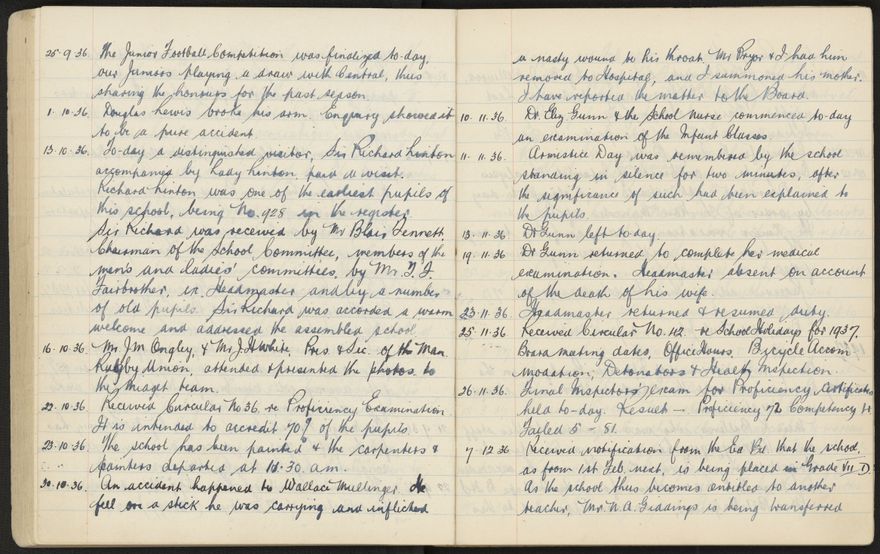 25.9.36. The Junior Football Competition was finalized to-day,
our Juniors playing a draw with Central, thus
sharing the honours for the past season.
1.10.36. Douglas Lewis broke his arm. Enquiry showed it
to be a pure accident
13.10.36. To-day a distinguished visitor, Sir Richard Linton
accompanied by Lady Linton paid a visit.
Richard Linton was one of the earliest pupils of
this school, being No. 928 on the register
Sir Richard was received by Mr Blair Tennett
Chairman of the School Committee, members of the
men's and ladies' committees, by Mr. F. J.
Fairbrother, ex. Headmaster and by a number
of old pupils. Sir Richard was accorded a warm
welcome and addressed the assembled school
16.10.36. Mr. J.M. Ongley, & Mr. J.H. White, Pres & Sec. of the Man.
Rugby Union, attended & presented the photos. to
the Midget team.
22.10.36 Received Circular No 36. re Proficiency Examination
It is intended to accredit 70% of the pupils.
23.10.36 The school has been painted & the carpenters &
painters departed at 11.30. a.m.
30.10.36. An accident happened to Wallace Mullinger. He
fell on a stick he was carrying and inflicted
a nasty wound to his throat. Mr Pryor & I had him
removed to Hospital, and I summoned his mother.
I have reported the matter to the Board.
10.11.36. Dr. Eliz Gunn & the School Nurse commenced to-day
an examination of the Infant Classes
11.11.36. Armistice Day was remembered by the school
standing in silence for two minutes, after
the significance of such had been explained to
the pupils.
13.11.36 Dr Gunn left to-day.
19.11.36 Dr Gunn returned to complete her medical
examination. Headmaster absent on account
of the death of his wife.
23.11.36 Headmaster returned & resumed duty.
25.11.36 Received Circular No. 42 re School Holidays for 1937,
Board Meeting dates, Office Hours. Bicycle Accom
modation, Detonators & Health Inspection.
26.11.36. Final Inspectors' Exam for Proficiency Certificates
held to-day. Result — Proficiency 72 Competency
Failed 5 - 51.
7.12.36 Received notification from the Ed Bd. that the school,
as from 1st Feb. next, is being placed in Grade VII D
As the school thus becomes entitled to another
teacher, Mr. N.A. Giddings is being transferred